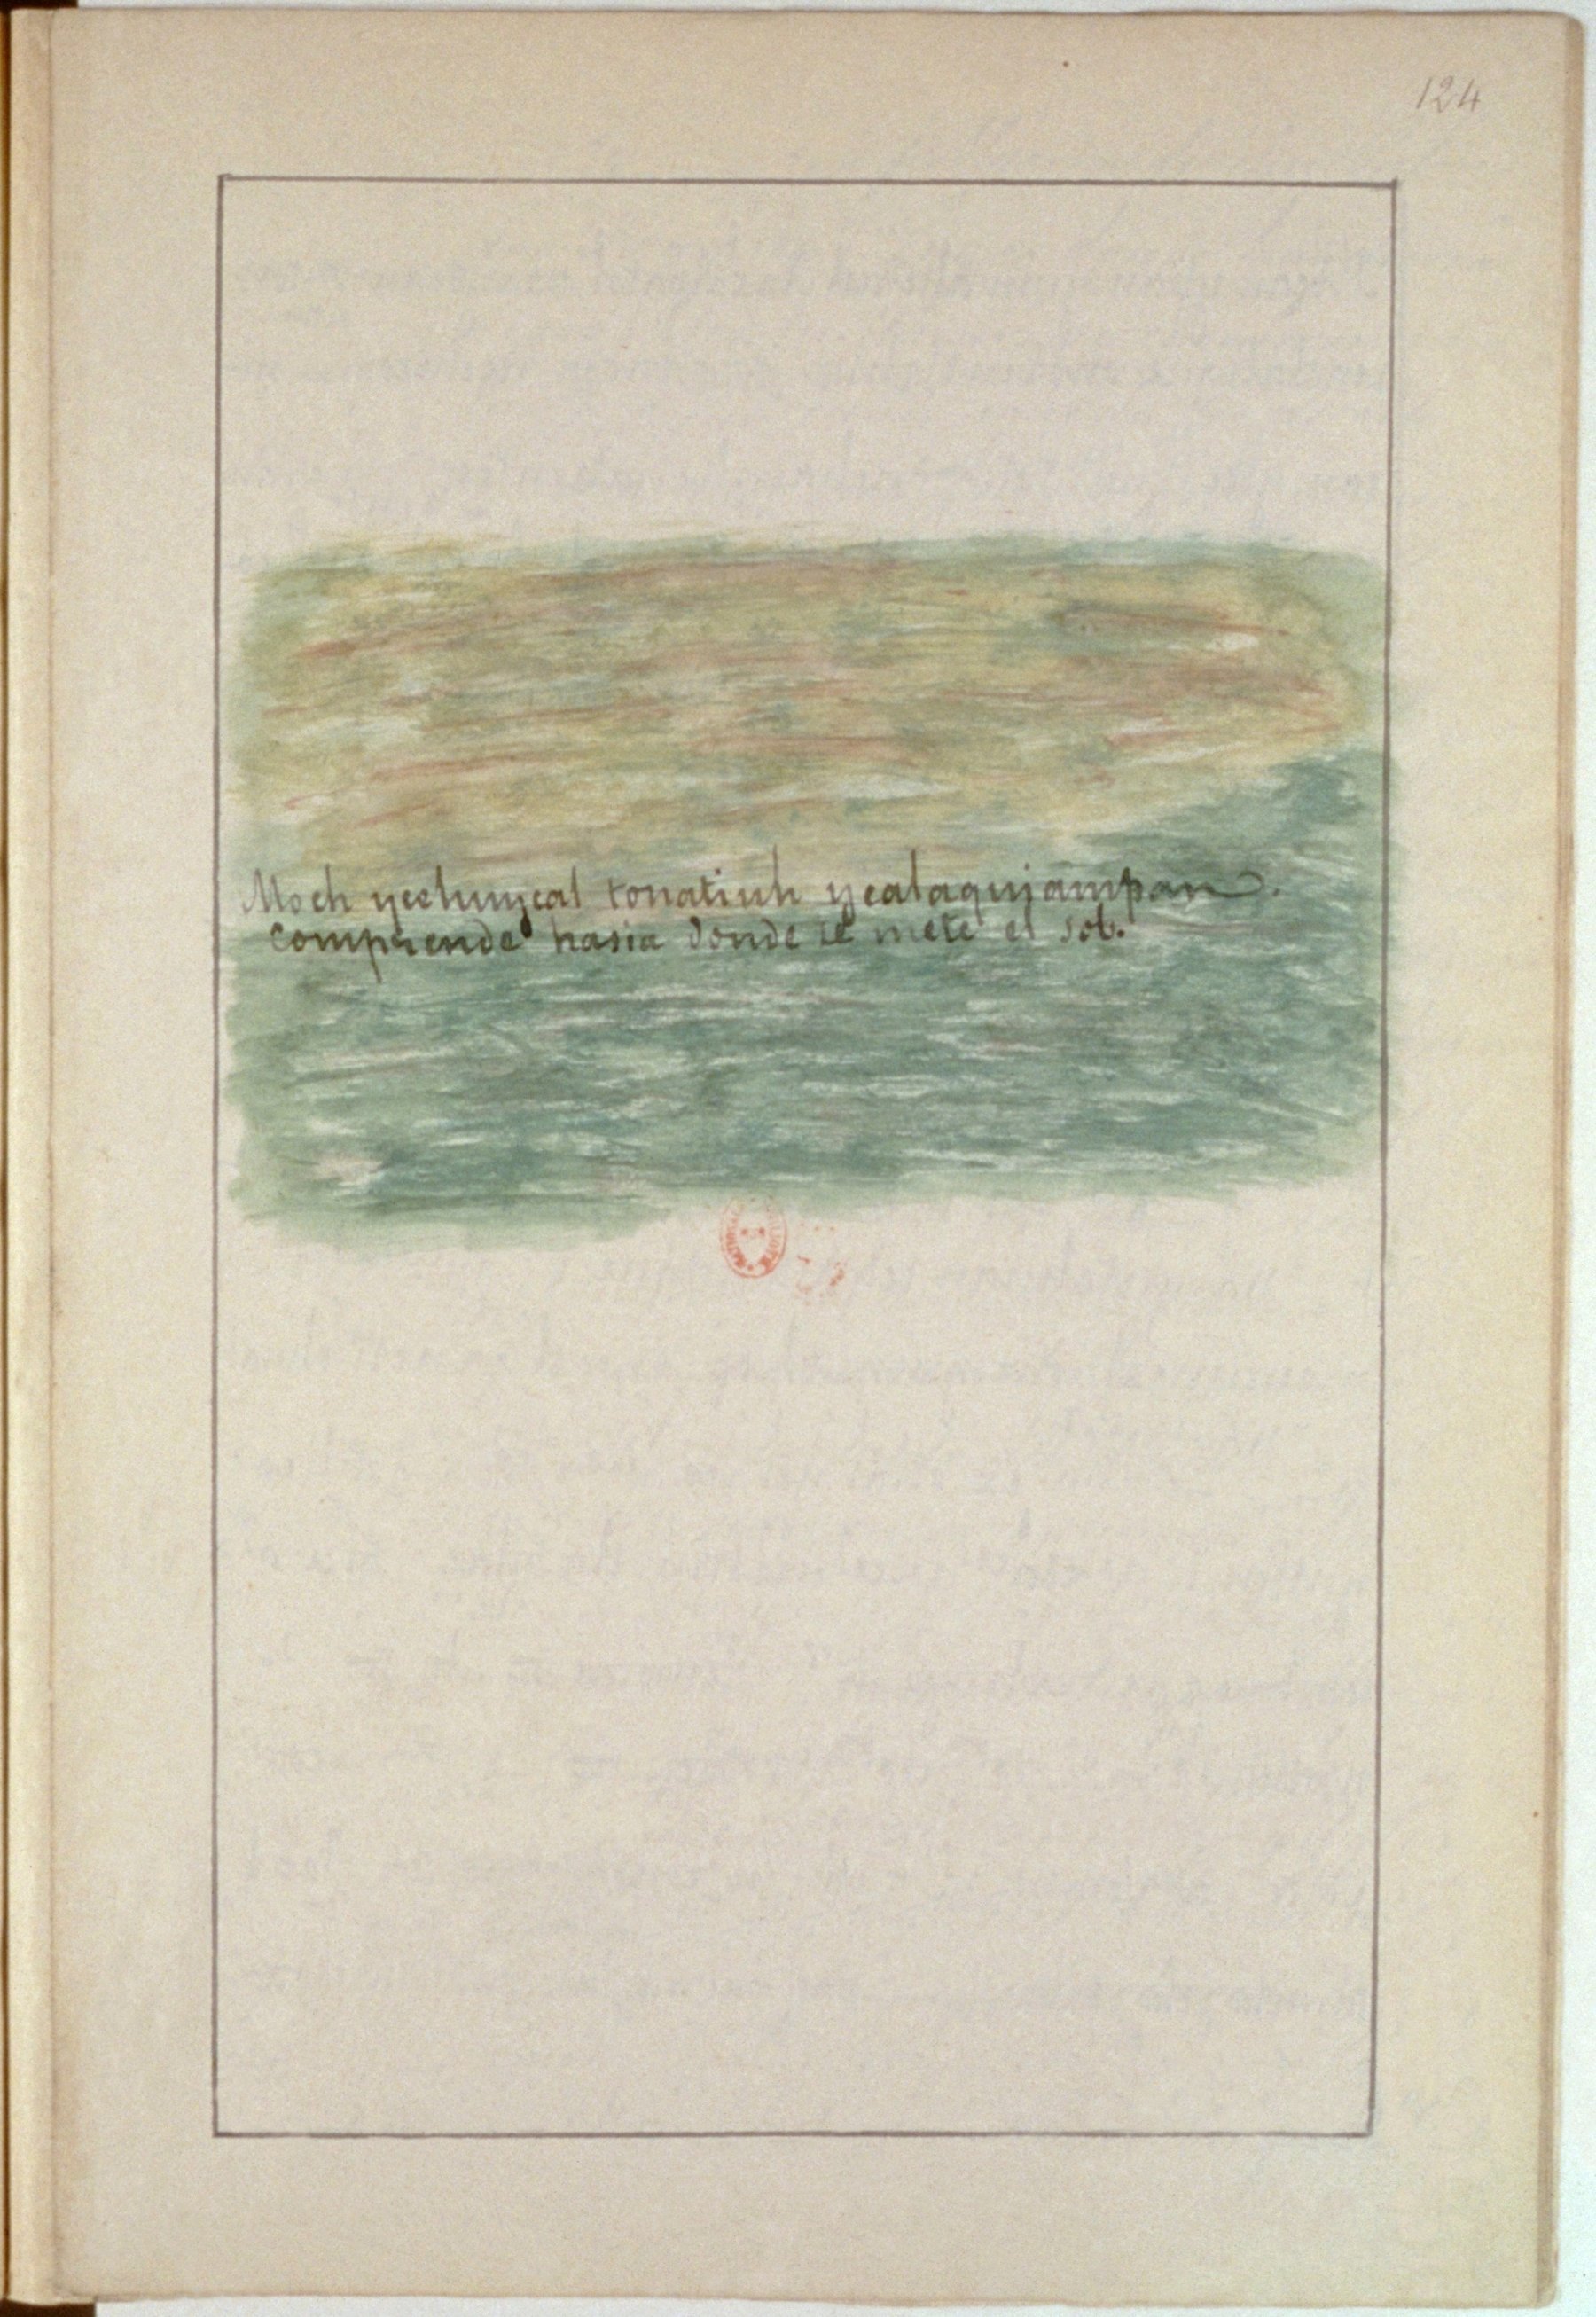 124
Moch yechuycal tonatiuh ycalaquiampan.
comprende hasia donde se mete el sol.